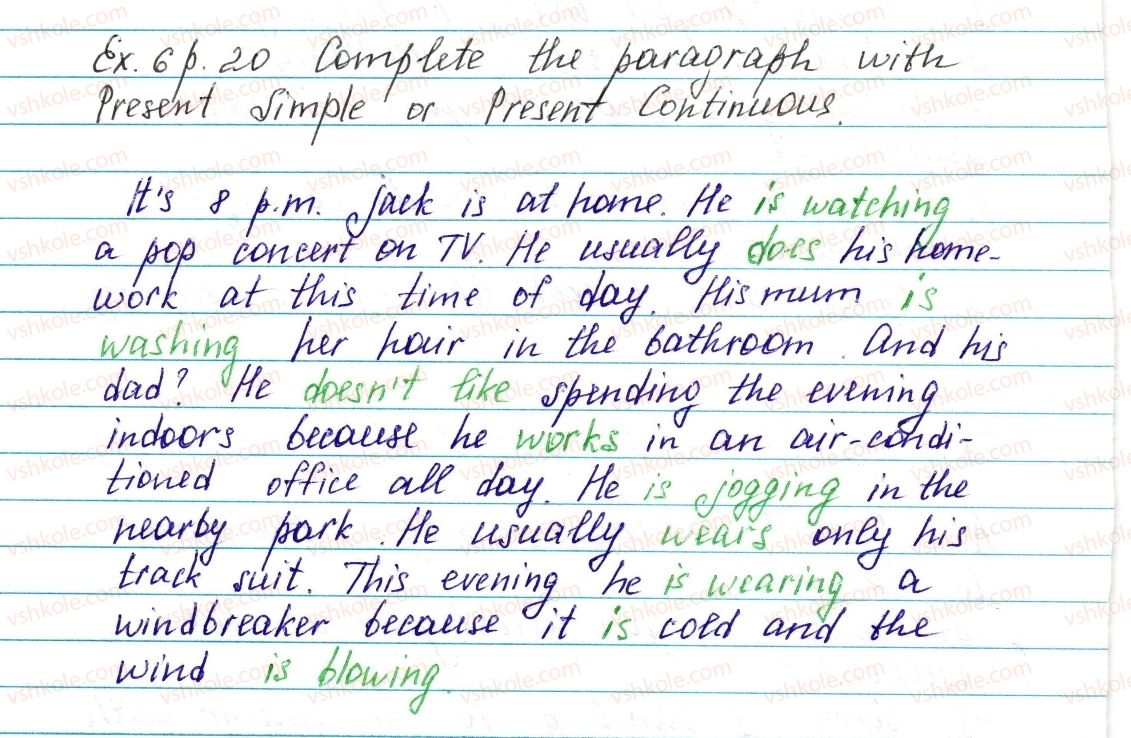 Ex. 6 p. 20 Complete the paragraph with
Present Simple or Present Continuous.
It's 8 p.m. Jack is at home. He is watching
a pop concert on TV. He usually does his home-
work at this time of day. His mum is
washing her hair in the bathroom. And his
dad? He doesn't like spending the evening
indoors because he works in an air-condi-
tioned office all day. He is jogging in the
nearby park. He usually wears only his
track suit. This evening he is wearing a
windbreaker because it is cold and the
wind is blowing.
vshkole.com